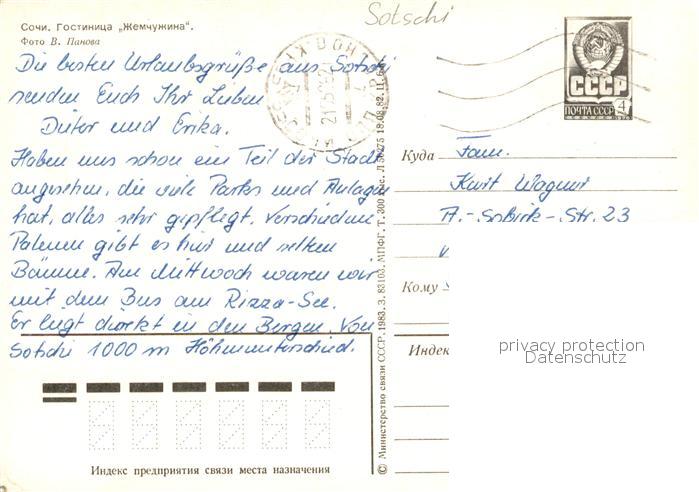 Sotschi
Сочи. Гостиница „Жемчужина“.
Фото В. Панова
Die besten Urlaubsgrüße aus Sotschi
senden Euch Ihr Lieben
Dieter und Erika.
Haben uns schon ein Teil der Stadt
angesehen, die viele Parks und Anlagen
hat, alles sehr gepflegt. Verschiedene
Palmen gibt es hier und selten
Bäume. Am Mittwoch waren wir
mit dem Bus am Rizza-See.
Er liegt direkt in den Bergen. Von
Sotschi 1000 m Höhenunterschied.
Индекс предприятия связи места назначения
© Министерство связи СССР. 1983. З. 83103. МПФГ. т. 300 тыс.
СССР
ПОЧТА СССР 4
Куда Fam.
Kurt Wagner
A.-Sobirk-Str. 23
Кому
Индекс
privacy protection
Datenschutz